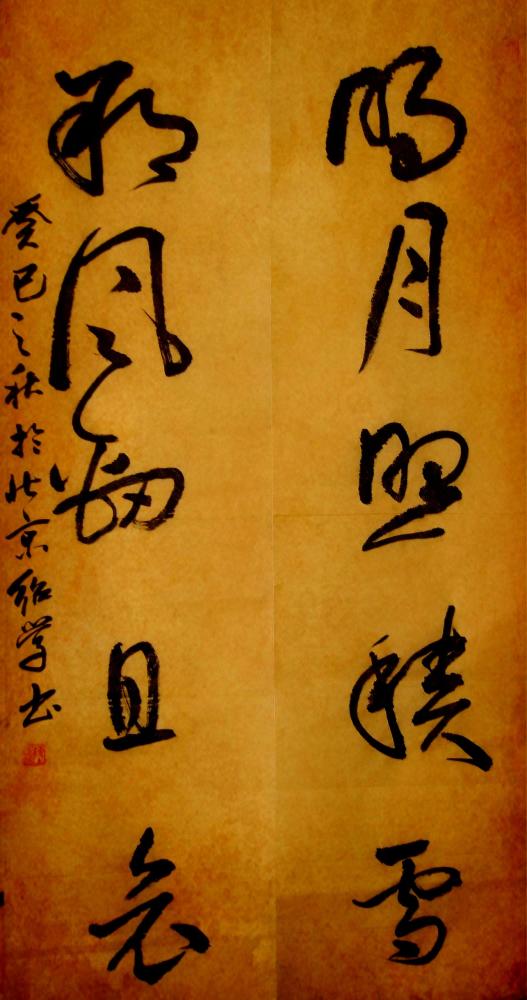 明月照積雪
朔風勁且哀
癸巳之秋於北京紹学书